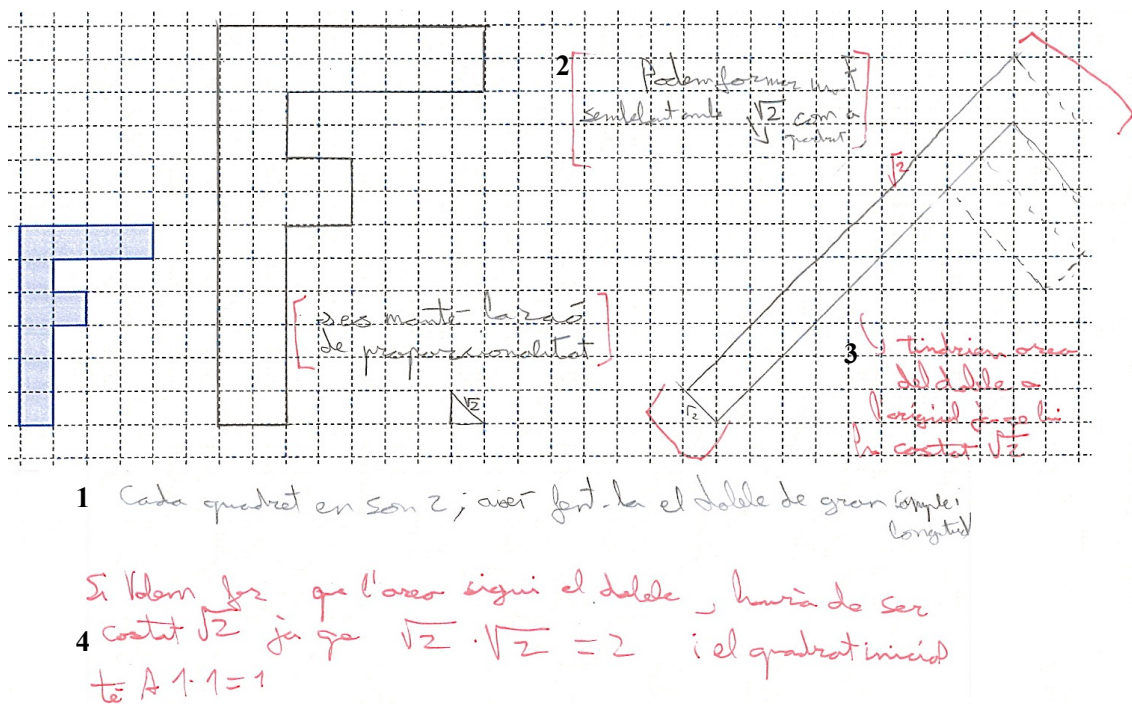 2
Podem formar una F
semblant amb √2 com a
quadrat
√2
[ses manté la raó
de proporcionalitat]
√2
√2
3
tindriem area
del doble a
l'original ja que hi
ha costat √2
1 Cada quadret en son 2; així fent-la el doble de gran (ample i
longitud
Si Volem fer que l'area sigui el doble, haurà de ser
4 costat √2 ja qe √2 · √2 = 2 i el quadrat inicial
té A 1·1=1